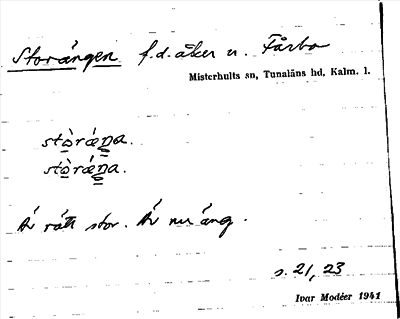 Storängen f.d. åker u. Fårbo
Misterhults sn, Tunaläns hd, Kalm. l.
stò̱ráṉa.
stò̱ráṉa.
Är rätt stor. Är nu äng.
s. 21, 23
Ivar Modéer 1941